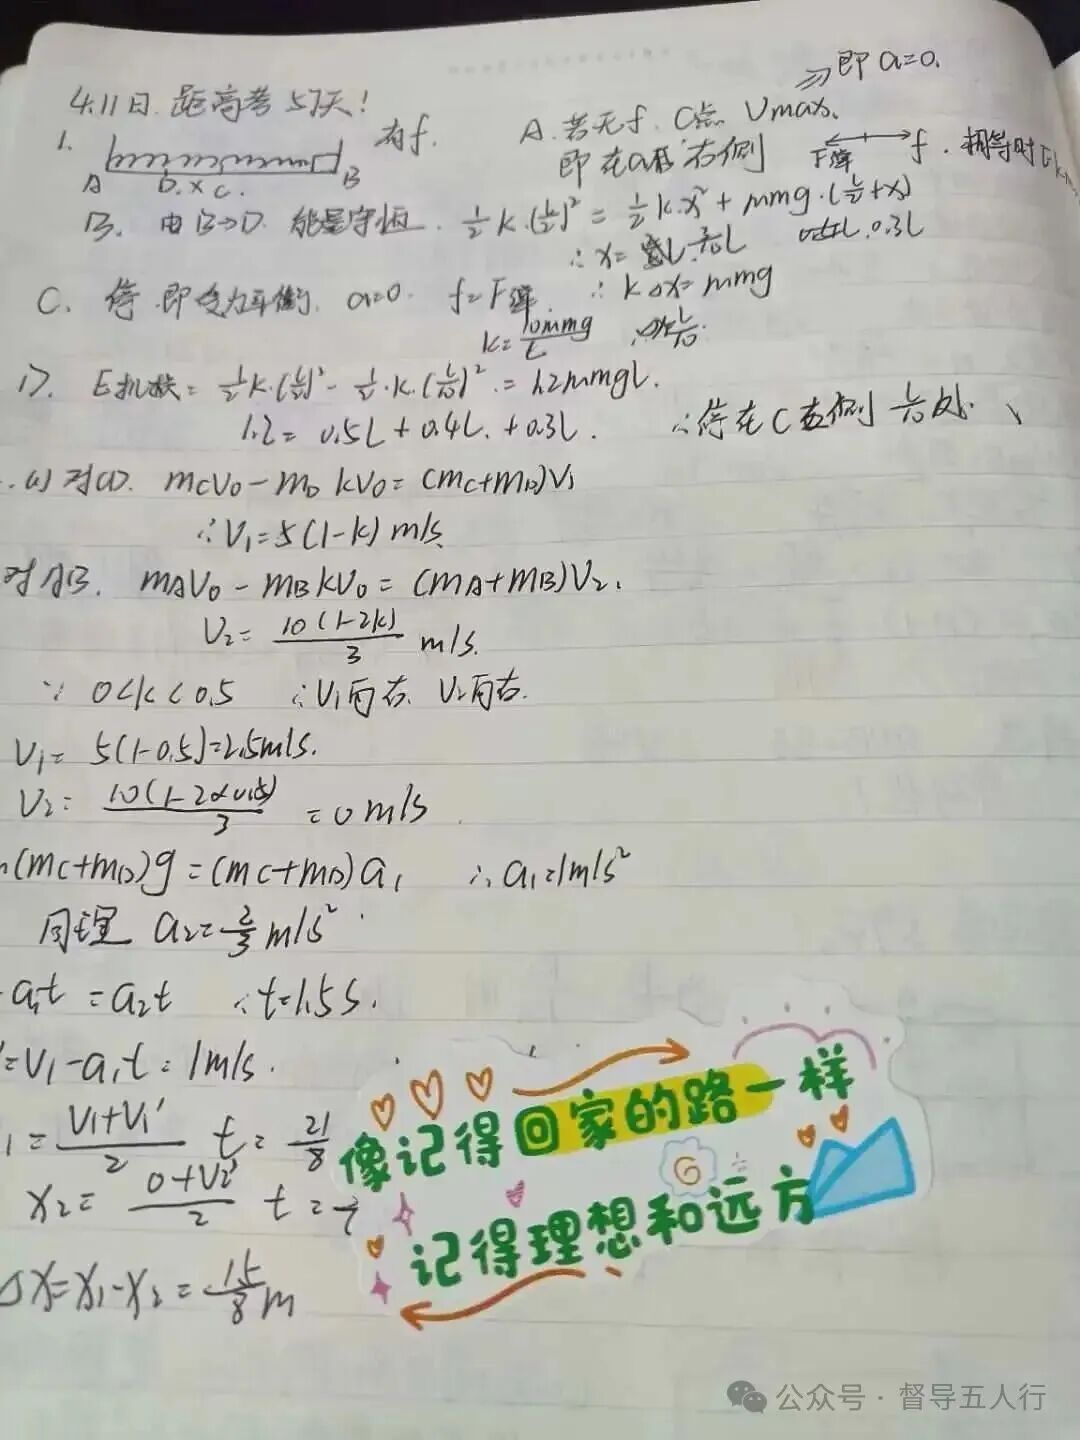 4.11日.距高考57天!
即 a=0.
1. 有f. A.若无f.C点 Vmax.
A D.x C. B 即在 右侧 F弹 f.相等时
B. 由B→D 能量守恒. ½k·(L/2)² = ½k·x² + μmg·(L/2+x)
∴x= 3/10L 0.3L
C. 停.即受力平衡. a=0. f=F弹. ∴ kΔx=μmg
k=10μmg/L
D. E机损= ½k·(L/2)² - ½·k·(L/10)² = 1.2μmgL.
1.2= 0.5L+0.4L.+0.3L. ∴停在C 侧 L/10处.
(1)对CD. mcv₀-mD kv₀=(mc+mD)v₁
∴v₁=5(1-k) m/s.
对AB. mAv₀-mBkv₀=(mA+mB)v₂.
v₂= 10(1-2k)/3 m/s.
∵ 0<k<0.5 ∴v₁向右. v₂向右.
v₁= 5(1-0.5)=2.5m/s.
v₂= 10(1-2×0.5)/3 =0 m/s
(mc+mD)g=(mc+mD)a₁ ∴a₁=1m/s²
同理 a₂=2/3 m/s²
-a₁t =a₂t ∴t=1.5s.
=v₁-a₁t=1m/s.
₁= (v₁+v₁')/2 t= 21/8
x₂= (0+v₂')/2 t=
Δx=x₁-x₂= 15/8 m
像记得回家的路一样
记得理想和远方
公众号·督导五人行